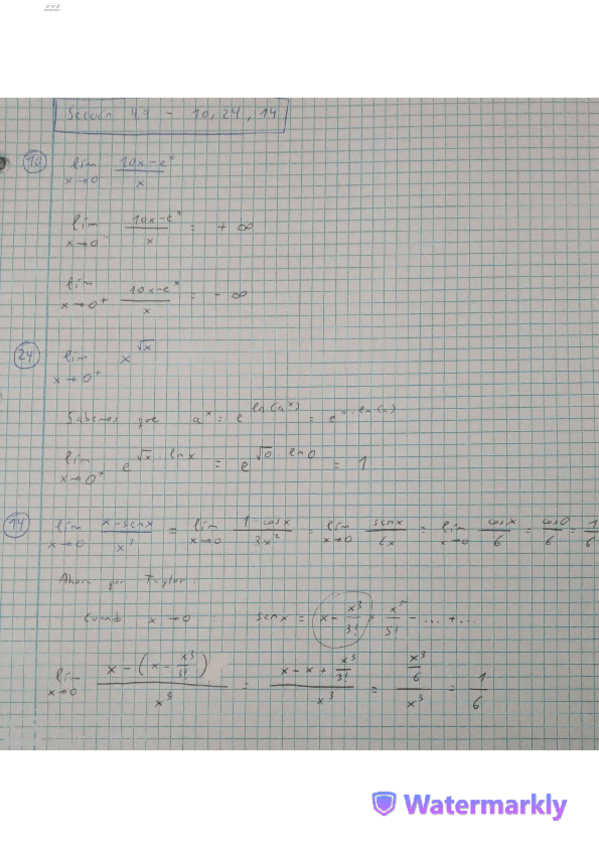 Sección 4.7 - 10, 24, 14
10 lim x→0 (10x-e^x)/x
lim x→0⁻ (10x-e^x)/x = +∞
lim x→0⁺ (10x-e^x)/x = -∞
24 lim x→0⁺ x^√x
Sabemos que a^x = e^ln(a^x) = e^x·ln(a)
lim x→0⁺ e^√x · ln x = e^√0 · ln 0 = 1
14 lim x→0 (x-senx)/x³ = lim x→0 (1-cosx)/3x² = lim x→0 senx/6x = lim x→0 cosx/6 = cos0/6 = 1/6
Ahora por Taylor:
Cuando x→0 : senx = x - x³/3! + x⁵/5! - ... + ...
lim x→0 (x-(x-x³/3!))/x³ = (x-x+x³/3!)/x³ = (x³/6)/x³ = 1/6
Watermarkly